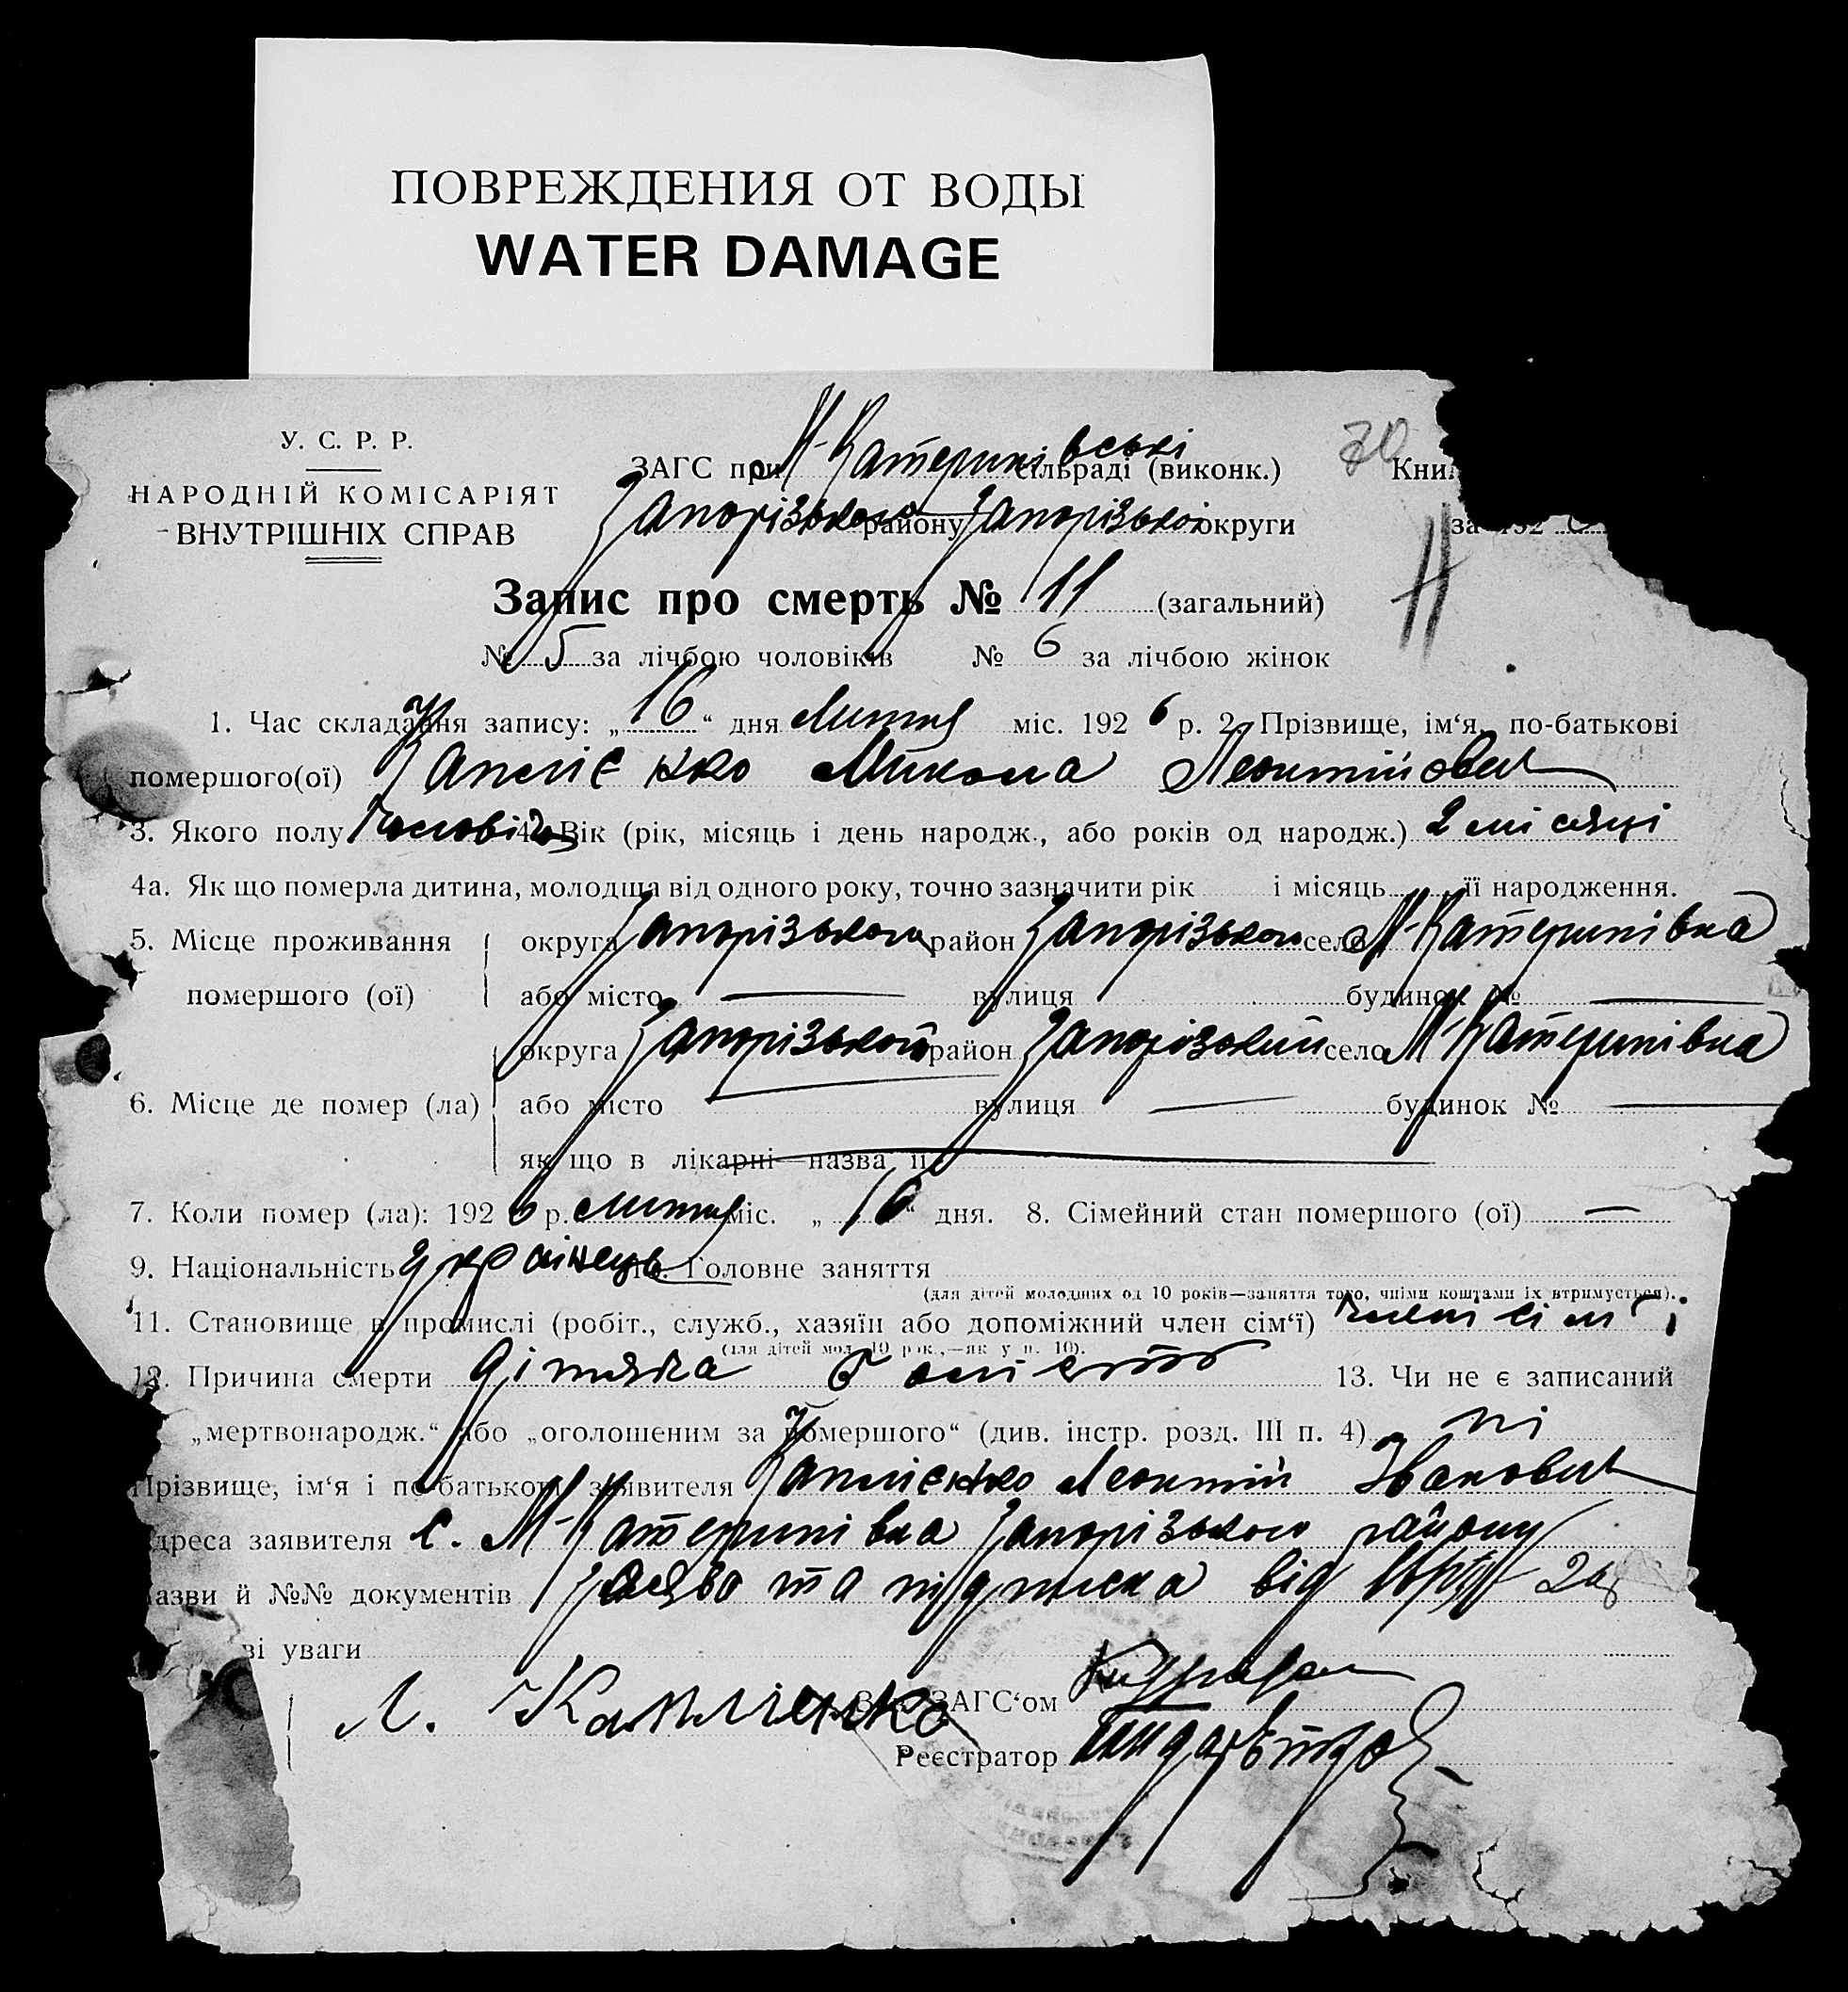 ПОВРЕЖДЕНИЯ ОТ ВОДЫ
WATER DAMAGE
У. С. Р. Р.
НАРОДНІЙ КОМІСАРІЯТ
ВНУТРІШНІХ СПРАВ
ЗАГС при М-Катеринівські сільраді (виконк.)
Запорізького району Запорізької округи
70
Кни
за 192
Запис про смерть № 11 (загальний)
11
№ 5 за лічбою чоловіків № 6 за лічбою жінок
1. Час складання запису: „16“ дня Лютия міс. 1926 р. 2. Прізвище, ім‘я, по-батькові
помершого(ої) Каплієнко Микола Леонтійович
3. Якого полу 4. Вік (рік, місяць і день народж., або років од народж.) 2 місяці
4а. Як що померла дитина, молодща від одного року, точно зазначити рік і місяць її народження.
5. Місце проживання помершого (ої)
округа Запорізького район Запорізького село М-Катеринівка
або місто — вулиця будинок № —
6. Місце де помер (ла)
округа Запорізької район Запорізький село М-Катеринівка
або місто — вулиця — будинок № —
як що в лікарні—назва її
7. Коли помер (ла): 1926 р. лютия міс. „16“ дня. 8. Сімейний стан помершого (ої) —
9. Національність українець 10. Головне заняття
(для дітей молодших од 10 років—заняття того, чиїми коштами їх втримується).
11. Становище в промислі (робіт., служб., хазяїн або допоміжний член сім‘ї) член сім'ї
(для дітей мол. 10 рок.,—як у п. 10).
12. Причина смерти Дітяча 13. Чи не є записаний
„мертвонародж.“ або „оголошеним за помершого“ (див. інстр. розд. III п. 4) ні
Прізвище, ім‘я і по-батькові заявителя Каплієнко Леонтій Іванович
дреса заявителя с. М-Катеринівка Запорізького району
азви й №№ документів та підписка від
ві уваги
Л. Каплієнко
Зав. ЗАГС‘ом
Реєстратор